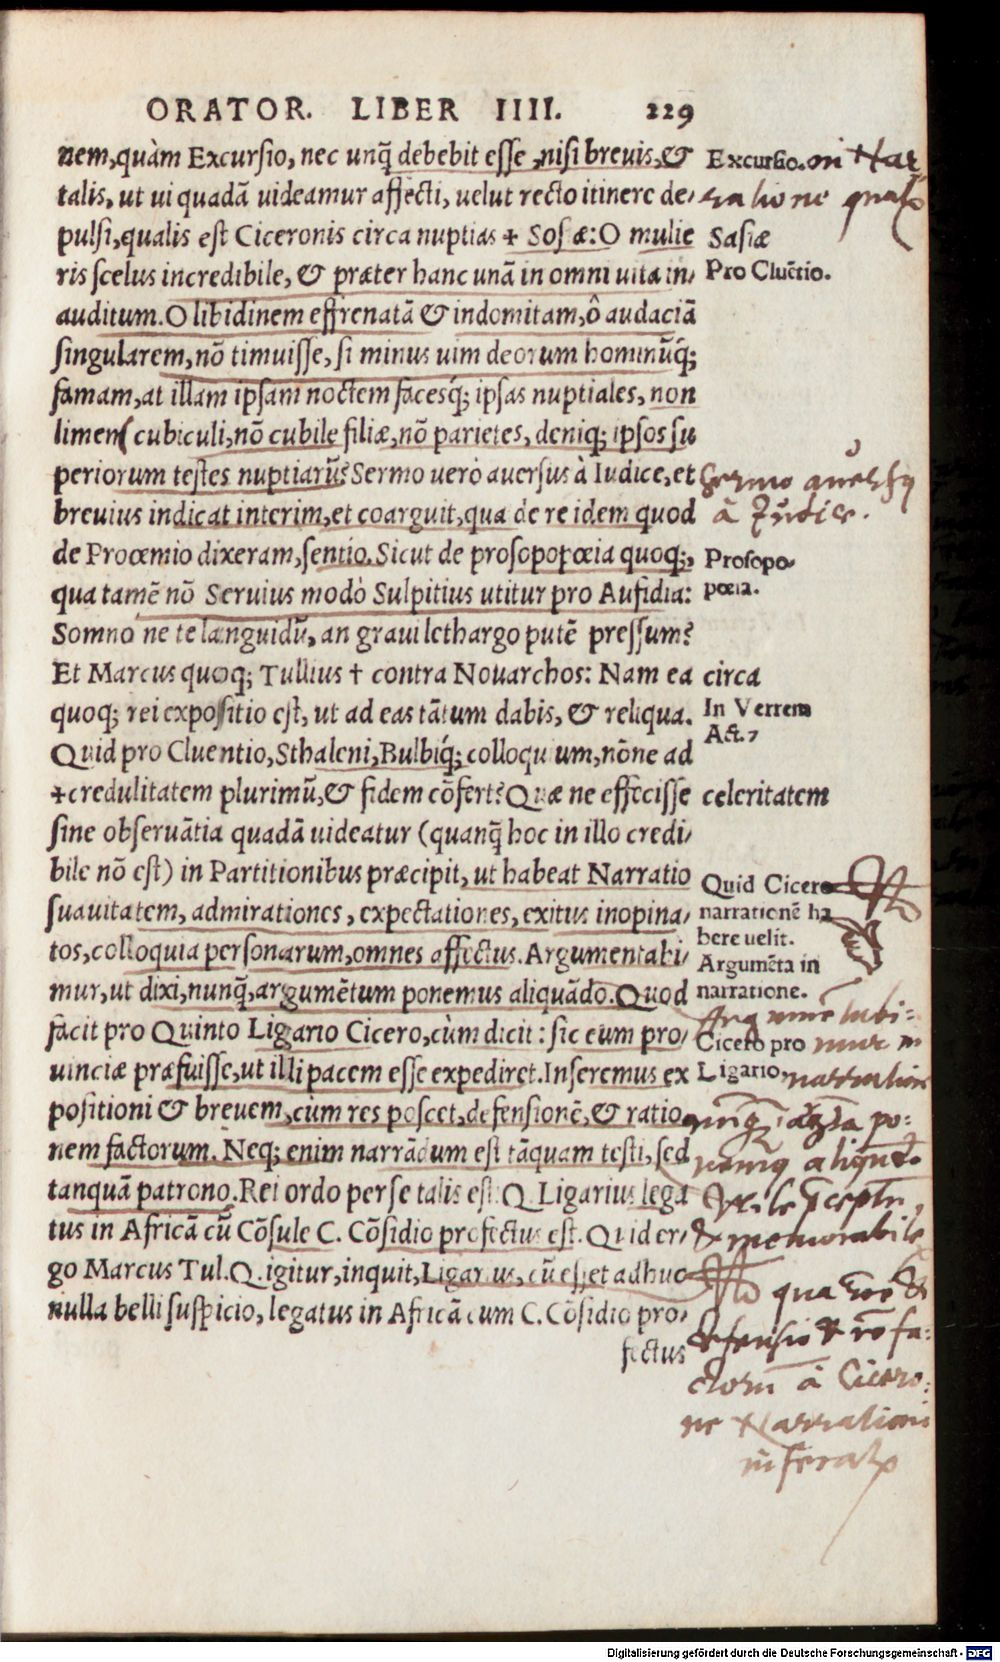 ORATOR. LIBER IIII. 229
nem,quàm Excursio, nec unq̃ debebit esse ,nisi breuis,&
Excursio. in Nar
talis, ut ui quadã uideamur affecti, uelut recto itinere de/
ratione
pulsi,qualis est Ciceronis circa nuptias + Sosæ:O mulie
Sasiæ
ris scelus incredibile, & præter hanc unã in omni uita in/
Pro Cluẽtio.
auditum.O libidinem effrenatã & indomitam,ô audaciã
singularem,nõ timuisse, si minus uim deorum hominũq́;
famam,at illam ipsam noctem facesq́; ipsas nuptiales, non
limen( cubiculi,nõ cubile filiæ,nõ parietes, deniq; ipsos su
periorum testes nuptiarũ?Sermo uerò auersus à Iudice,et
Sermo auersq
breuius indicat interim,et coarguit,qua de re idem quod
à Iudice.
de Proœmio dixeram,sentio.Sicut de prosopopœia quoq;,
Prosopo/
qua tamẽ nõ Seruius modò Sulpitius utitur pro Aufidia:
pœia.
Somno ne te languidũ, an graui lethargo putẽ pressum?
Et Marcus quoq; Tullius † contra Nouarchos: Nam ea
circa
quoq; rei expositio est, ut ad eas tãtum dabis, & reliqua.
In Verrem
Act.7
Quid pro Cluentio,Sthaleni,Bulbiq́; colloquium,nõne ad
+credulitatem plurimũ,& fidem cõfert?Quæ ne effecisse
celeritatem
sine obseruãtia quadã uideatur (quanq̃ hoc in illo credi/
bile nõ est) in Partitionibus præcipit, ut habeat Narratio
Quid Cicero
suauitatem, admirationes, expectationes, exitus inopina/
narrationẽ ha
bere uelit.
tos,colloquia personarum,omnes affectus.Argumentabi/
Argumẽta in
mur,ut dixi,nunq̃,argumẽtum ponemus aliquãdo.Quod
narratione.
Argumẽtabi:
facit pro Quinto Ligario Cicero,cùm dicit: sic eum pro/
Cicero pro
mur in
uinciæ præfuisse,ut illi pacem esse expediret.Inseremus ex
Ligario.
narration
positioni & breuem,cùm res poscet,defensionẽ,& ratio
po:
nem factorum. Neq; enim narrãdum est tãquam testi, sed
tanquã patrono.Rei ordo per se talis est: Q. Ligarius lega
tus in Africã cũ Cõsule C. Cõsidio profectus est. Quid er/
& memorabile
go Marcus Tul.Q.igitur,inquit,Ligarius, cũ esset adhuc
nulla belli suspicio, legatus in Africã cum C. Cõsidio pro/
defensio & rõ fa:
fectus
ctorũ à Cicero:
ne Narrationi
Digitalisierung gefördert durch die Deutsche Forschungsgemeinschaft - DFG